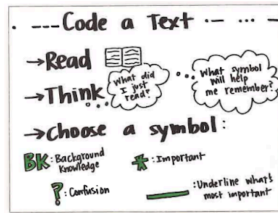 Code a Text
→Read
What did
I just
read?
→Think
What symbol
will help
me remember?
→Choose a symbol:
BK: Background
Knowledge
*: Important
?: Confusion
: Underline what's
most important